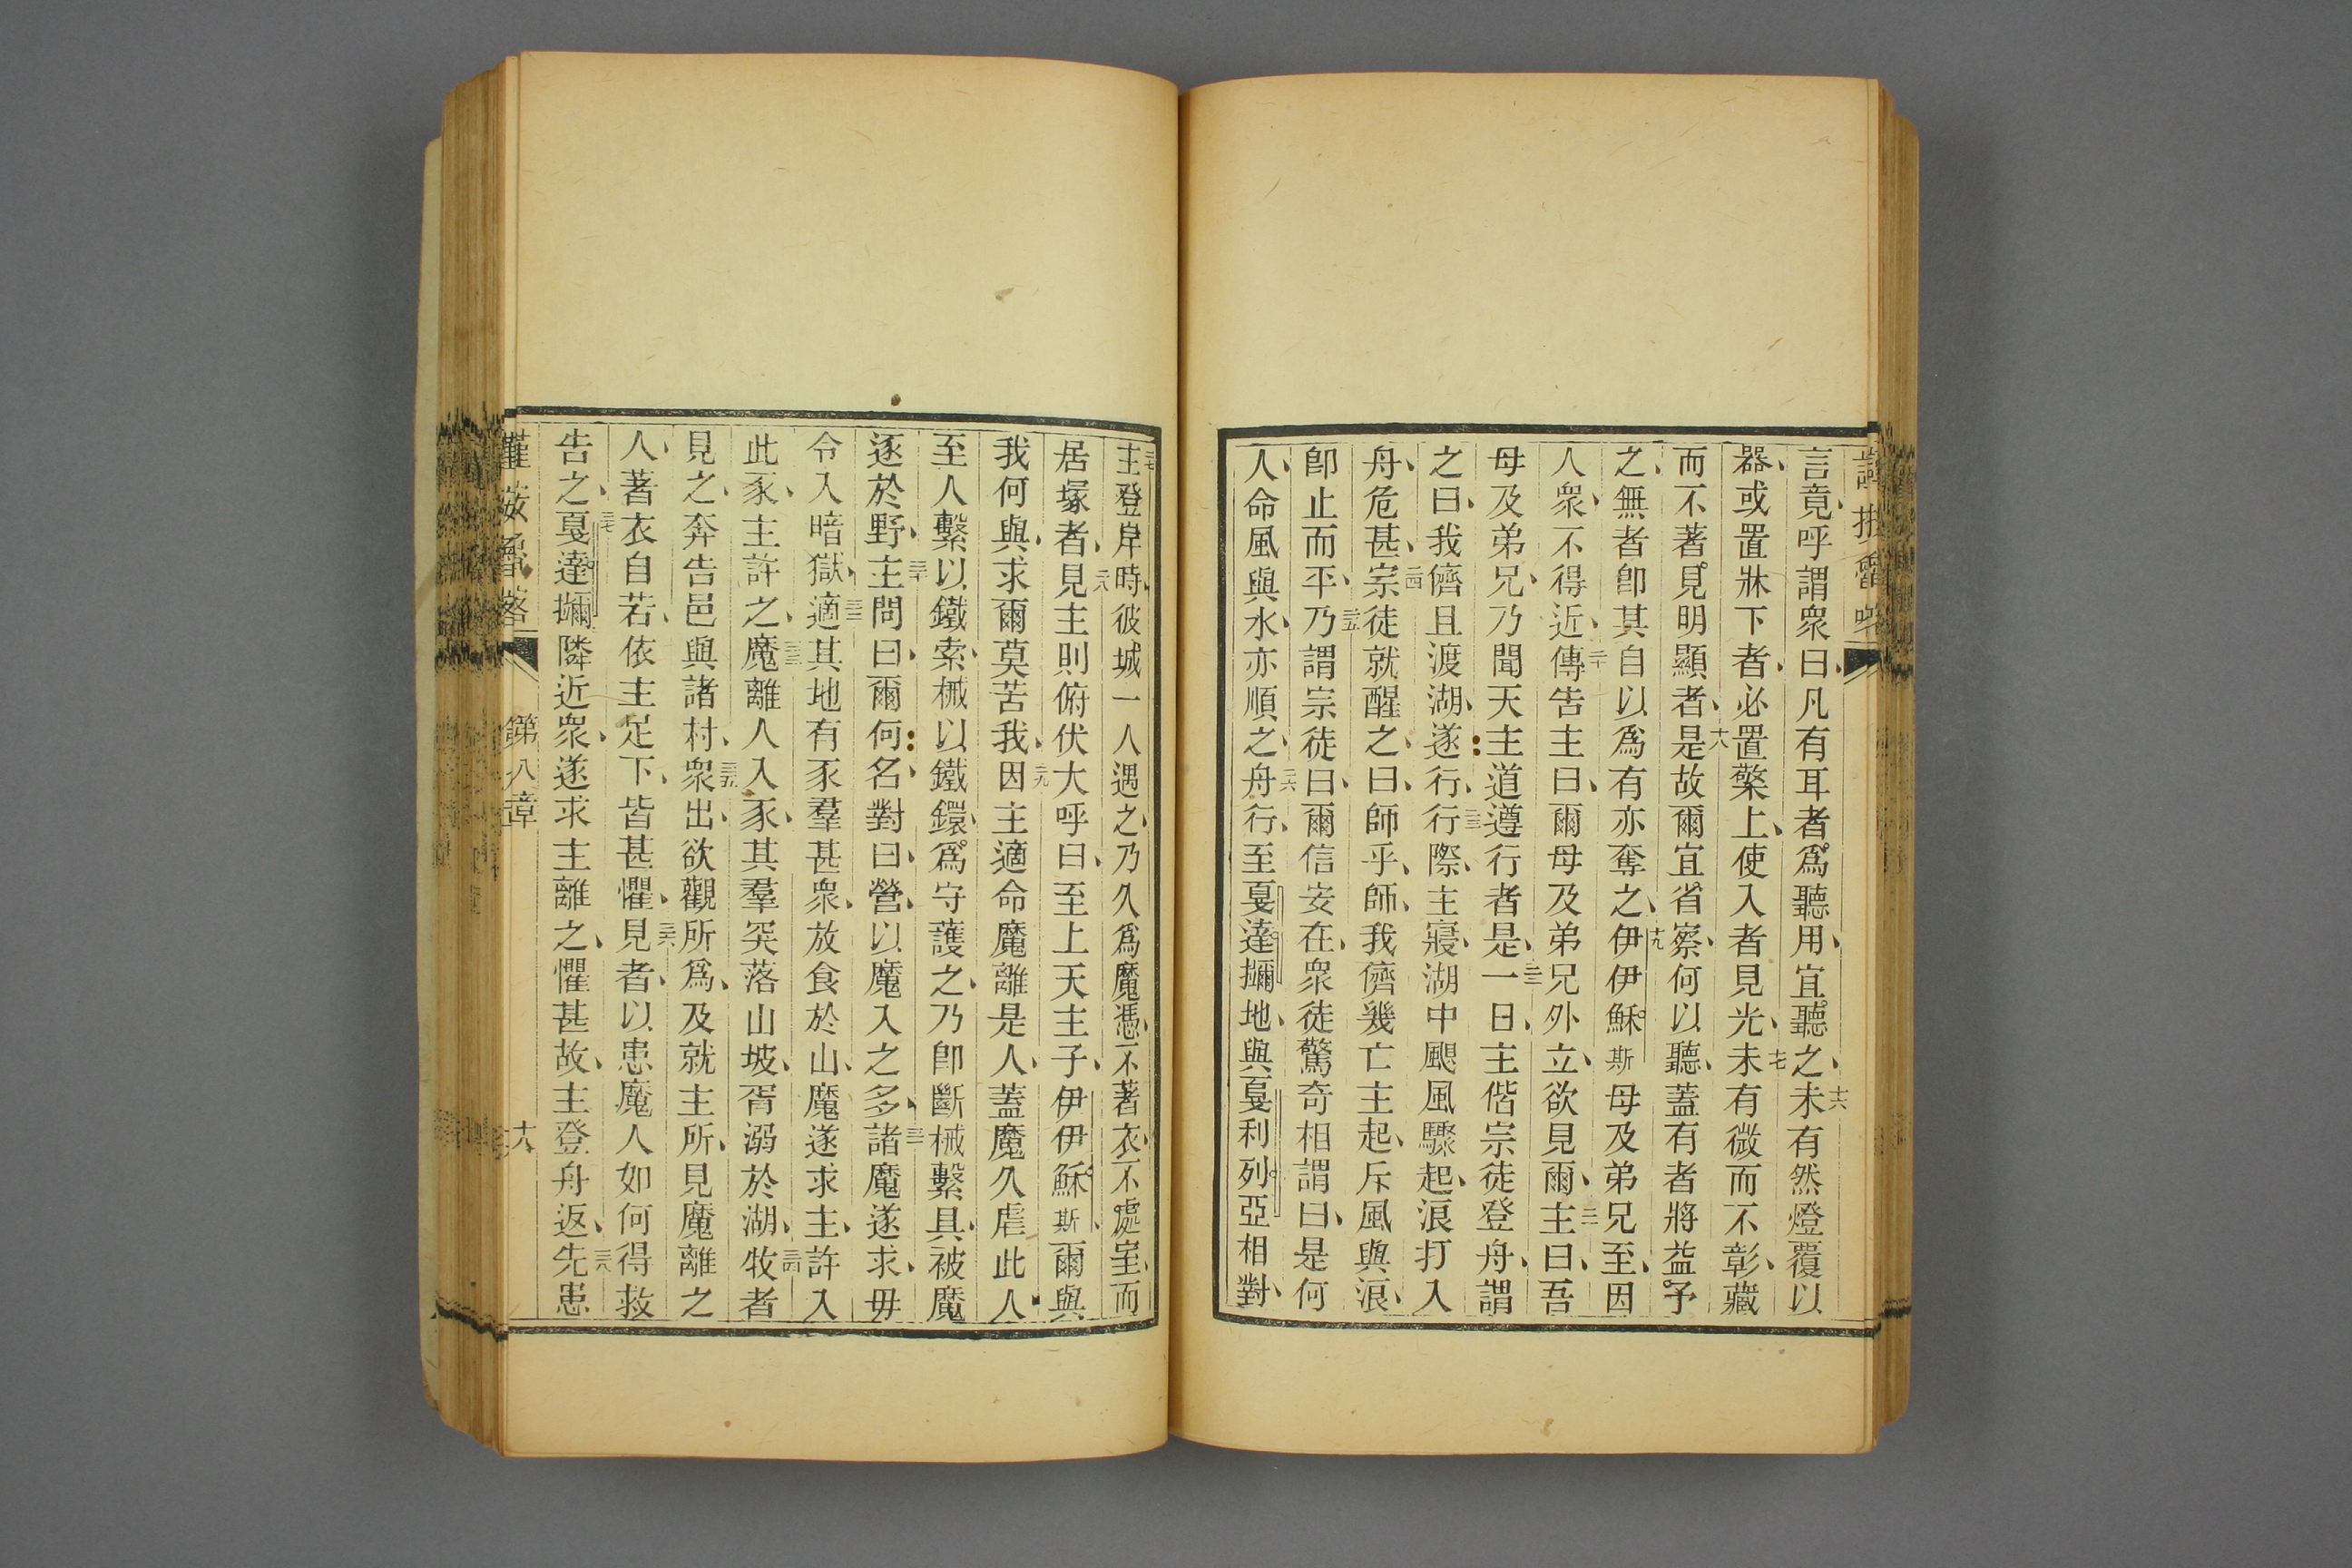 言竟呼謂衆曰凡有耳者爲聽用宜聽之十六未有然燈覆以
器或置牀下者必置檠上使入者見光十七未有微而不彰藏
而不著見明顯者十八是故爾宜省察何以聽蓋有者將益予
之無者卽其自以爲有亦奪之十九伊伊穌斯母及弟兄至因
人衆不得近二十傳告主曰爾母及弟兄外立欲見爾二一主曰吾
母及弟兄乃聞天主道遵行者是二二一日主偕宗徒登舟謂
之曰我儕且渡湖遂行二三行際主寢湖中颶風驟起浪打入
舟危甚二四宗徒就醒之曰師乎師我儕幾亡主起斥風與浪
卽止而平二五乃謂宗徒曰爾信安在衆徒驚奇相謂曰是何
人命風與水亦順之二六舟行至戛達擸地與戛利列亞相對
二七主登岸時彼城一人遇之乃久爲魔憑不著衣不處室而
居塚者二八見主則俯伏大呼曰至上天主子伊伊穌斯爾與
我何與求爾莫苦我二九因主適命魔離是人蓋魔久虐此人
至人繫以鐵索械以鐵鐶爲守護之乃卽斷械繫具被魔
逐於野三十主問曰爾何名對曰營以魔入之多三一諸魔遂求毋
令入暗獄三二適其地有豕羣甚衆放食於山魔遂求主許入
此豕主許之三三魔離人入豕其羣突落山坡胥溺於湖三四牧者
見之奔告邑與諸村三五衆出欲觀所爲及就主所見魔離之
人著衣自若依主足下皆甚懼三六見者以患魔人如何得救
告之三七戛達擸隣近衆遂求主離之懼甚故主登舟返三八先患
第八章
十八